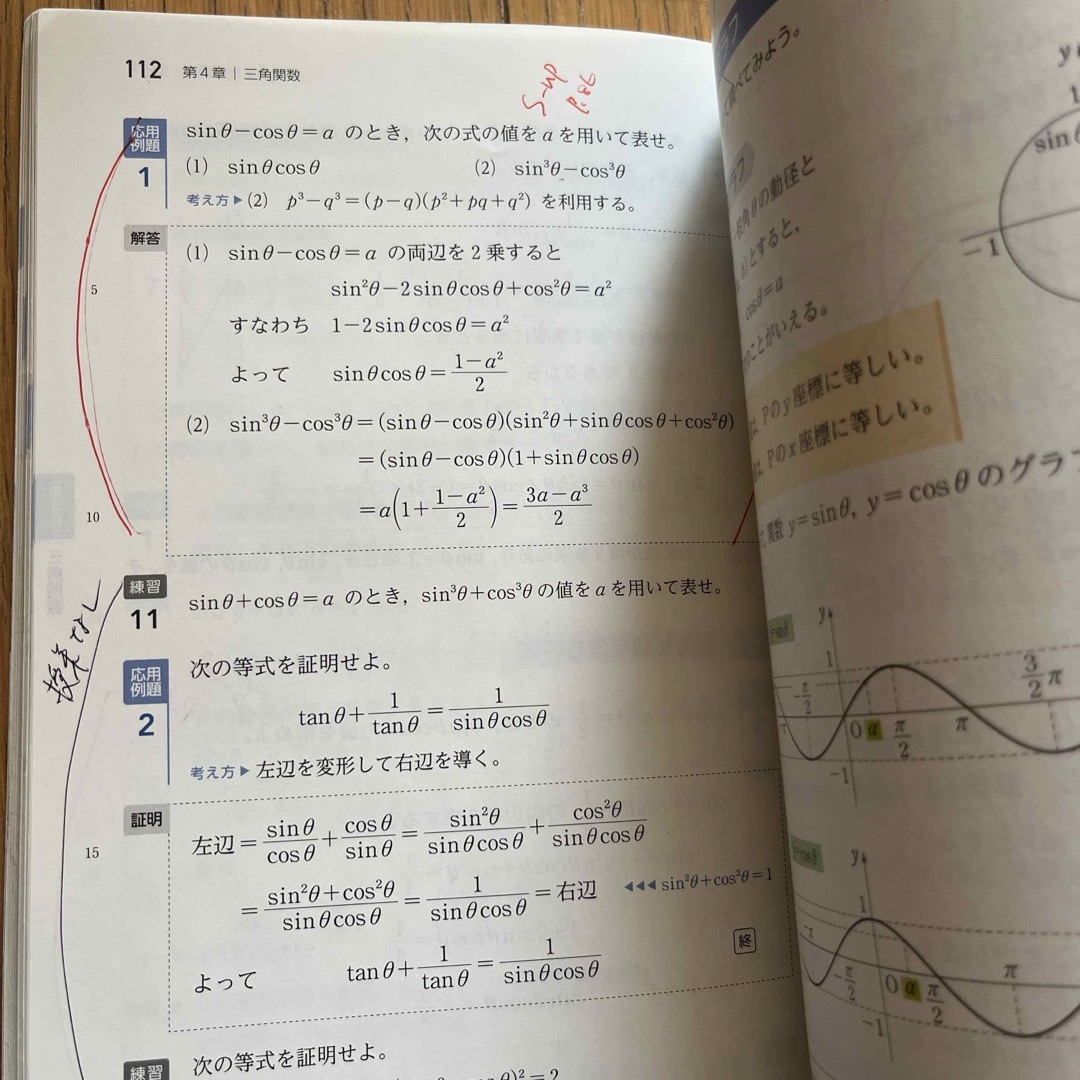 112 第4章 | 三角関数
応用例題 1 sinθ−cosθ=a のとき，次の式の値を a を用いて表せ。
(1) sinθcosθ (2) sin³θ−cos³θ
考え方▶(2) p³−q³=(p−q)(p²+pq+q²) を利用する。
解答 (1) sinθ−cosθ=a の両辺を2乗すると
5 sin²θ−2sinθcosθ+cos²θ=a²
すなわち 1−2sinθcosθ=a²
よって sinθcosθ=(1−a²)/2
(2) sin³θ−cos³θ=(sinθ−cosθ)(sin²θ+sinθcosθ+cos²θ)
=(sinθ−cosθ)(1+sinθcosθ)
10 =a(1+(1−a²)/2)=(3a−a³)/2
練習 11 sinθ+cosθ=a のとき，sin³θ+cos³θ の値を a を用いて表せ。
授業なし
応用例題 2 次の等式を証明せよ。
tanθ+1/tanθ=1/(sinθcosθ)
考え方▶左辺を変形して右辺を導く。
証明 左辺=sinθ/cosθ+cosθ/sinθ=sin²θ/(sinθcosθ)+cos²θ/(sinθcosθ)
15
=(sin²θ+cos²θ)/(sinθcosθ)=1/(sinθcosθ)=右辺 ◀◀◀ sin²θ+cos²θ=1
よって tanθ+1/tanθ=1/(sinθcosθ) 終
練習 次の等式を証明せよ。
)²=2
べてみよう。
y
1
sinθ
−1
角θの動径と
とすると，
cosθ=a
のことがいえる。
は，Pのy座標に等しい。
は，Pのx座標に等しい。
関数 y=sinθ, y=cosθ のグラフ
y=sinθ
y
1
−π/2
0 a π/2 π 3/2π
−1
y=cosθ
y
1
−π/2
0 a π/2 π
−1